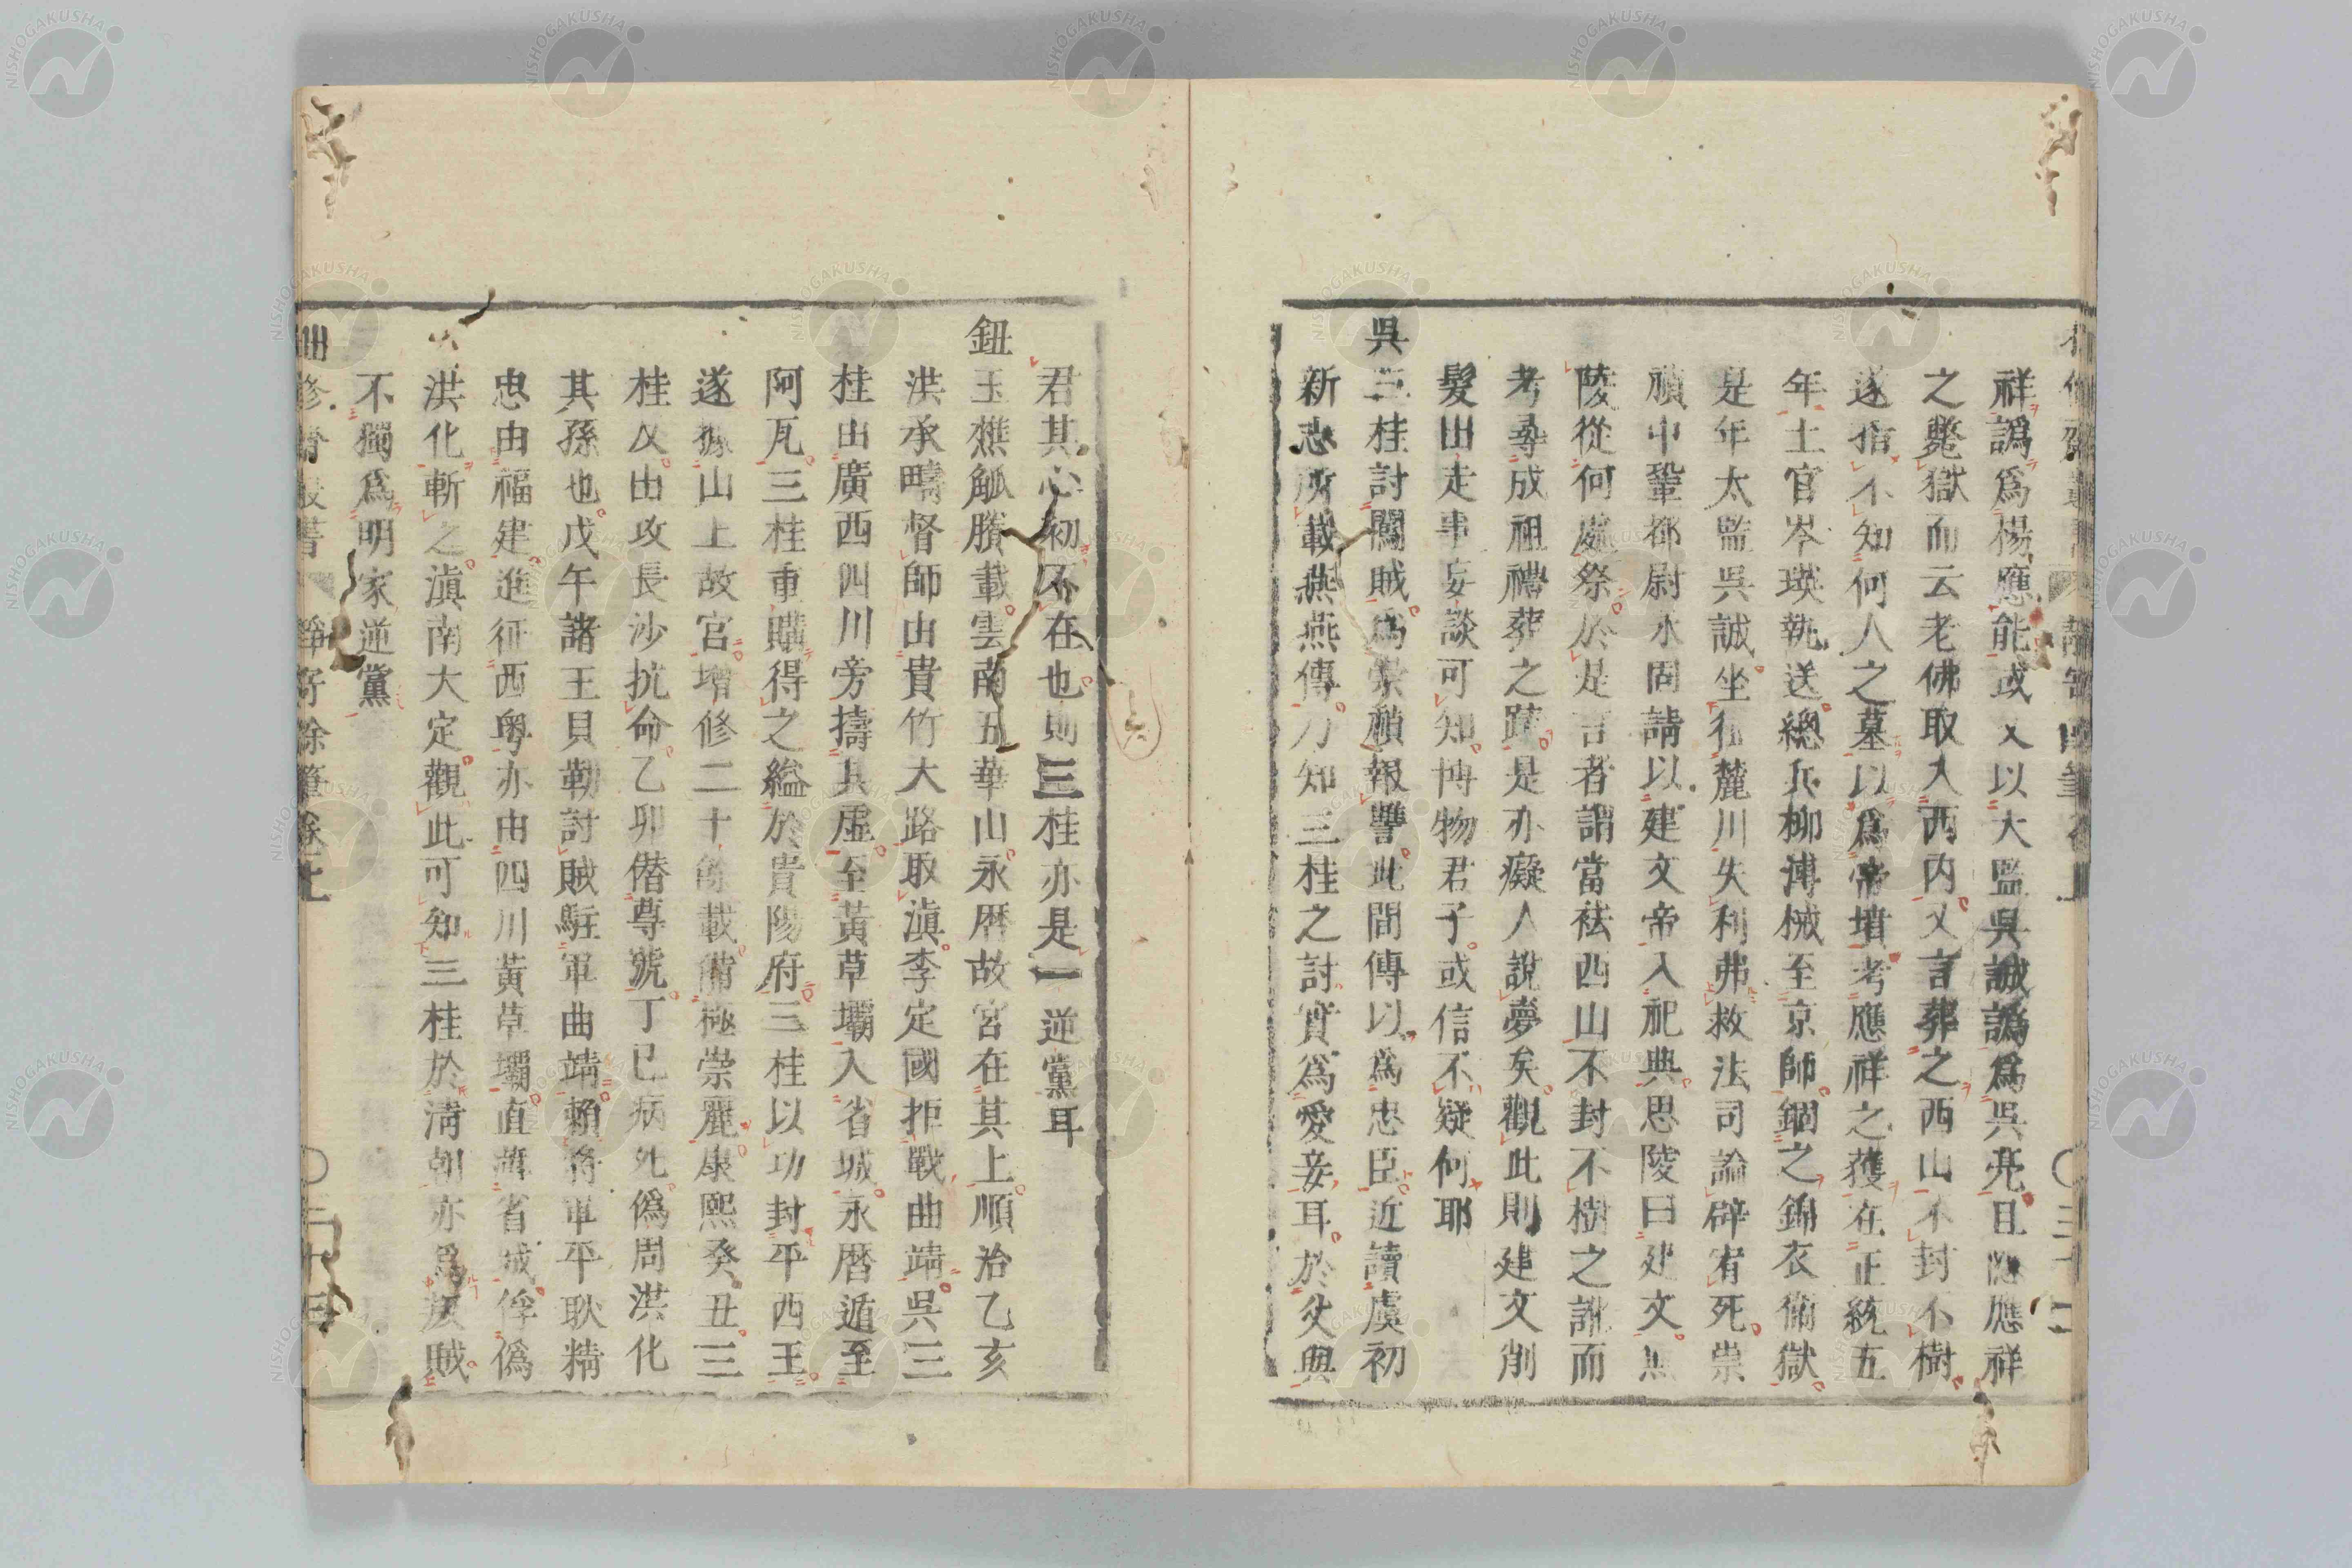 祥譌爲楊應能或又以大監吳誠譌爲吳亮且隨應祥
之斃獄而云老佛取入西内又言葬之西山不封不樹
遂指不知何人之墓以爲帝墳考應祥之獲在正統五
年土官岑瑛執送總兵柳溥械至京師錮之錦衣衛獄
是年太監吳誠坐征麓川失利弗救法司論辟宥死崇
禎中鞏都尉永固請以建文帝入祀典思陵曰建文無
陵從何處祭於是言者謂當祛西山不封不樹之訛而
考尋成祖禮葬之蹟是亦癡人說夢矣觀此則建文削
髮出走事妄談可知博物君子或信不疑何耶
吳三桂討闖賊爲崇禎報讐此間傳以爲忠臣近讀虞初
新志所載燕燕傳乃知三桂之討實爲愛妾耳於父與
君其心初不在也則三桂亦是一逆黨耳
鈕玉樵觚賸載雲南五華山永曆故宮在其上順治乙亥
洪承疇督師由貴竹大路取滇李定國拒戰曲靖吳三
桂由廣西四川旁擣其虛至黃草壩入省城永曆遁至
阿瓦三桂重購得之縊於貴陽府三桂以功封平西王
遂據山上故宮增修二十餘載備極崇麗康熙癸丑三
桂反由攻長沙抗命乙卯僭尊號丁巳病死僞周洪化
其孫也戊午諸王貝勒討賊駐軍曲靖賴將軍平耿精
忠由福建進征西粤亦由四川黃草壩直薄省城俘僞
洪化斬之滇南大定觀此可知三桂於淸朝亦爲叛賊
不獨爲明家逆黨